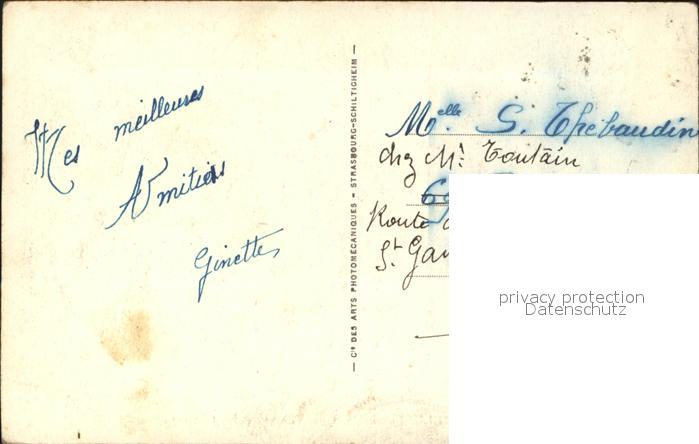 Mes meilleures
Amitiés
Ginette
— Cie DES ARTS PHOTOMÉCANIQUES - STRASBOURG-SCHILTIGHEIM —
Melle. S. Thébaudin
chez Mr. Toutain
69
Route
St Gau
privacy protection
Datenschutz